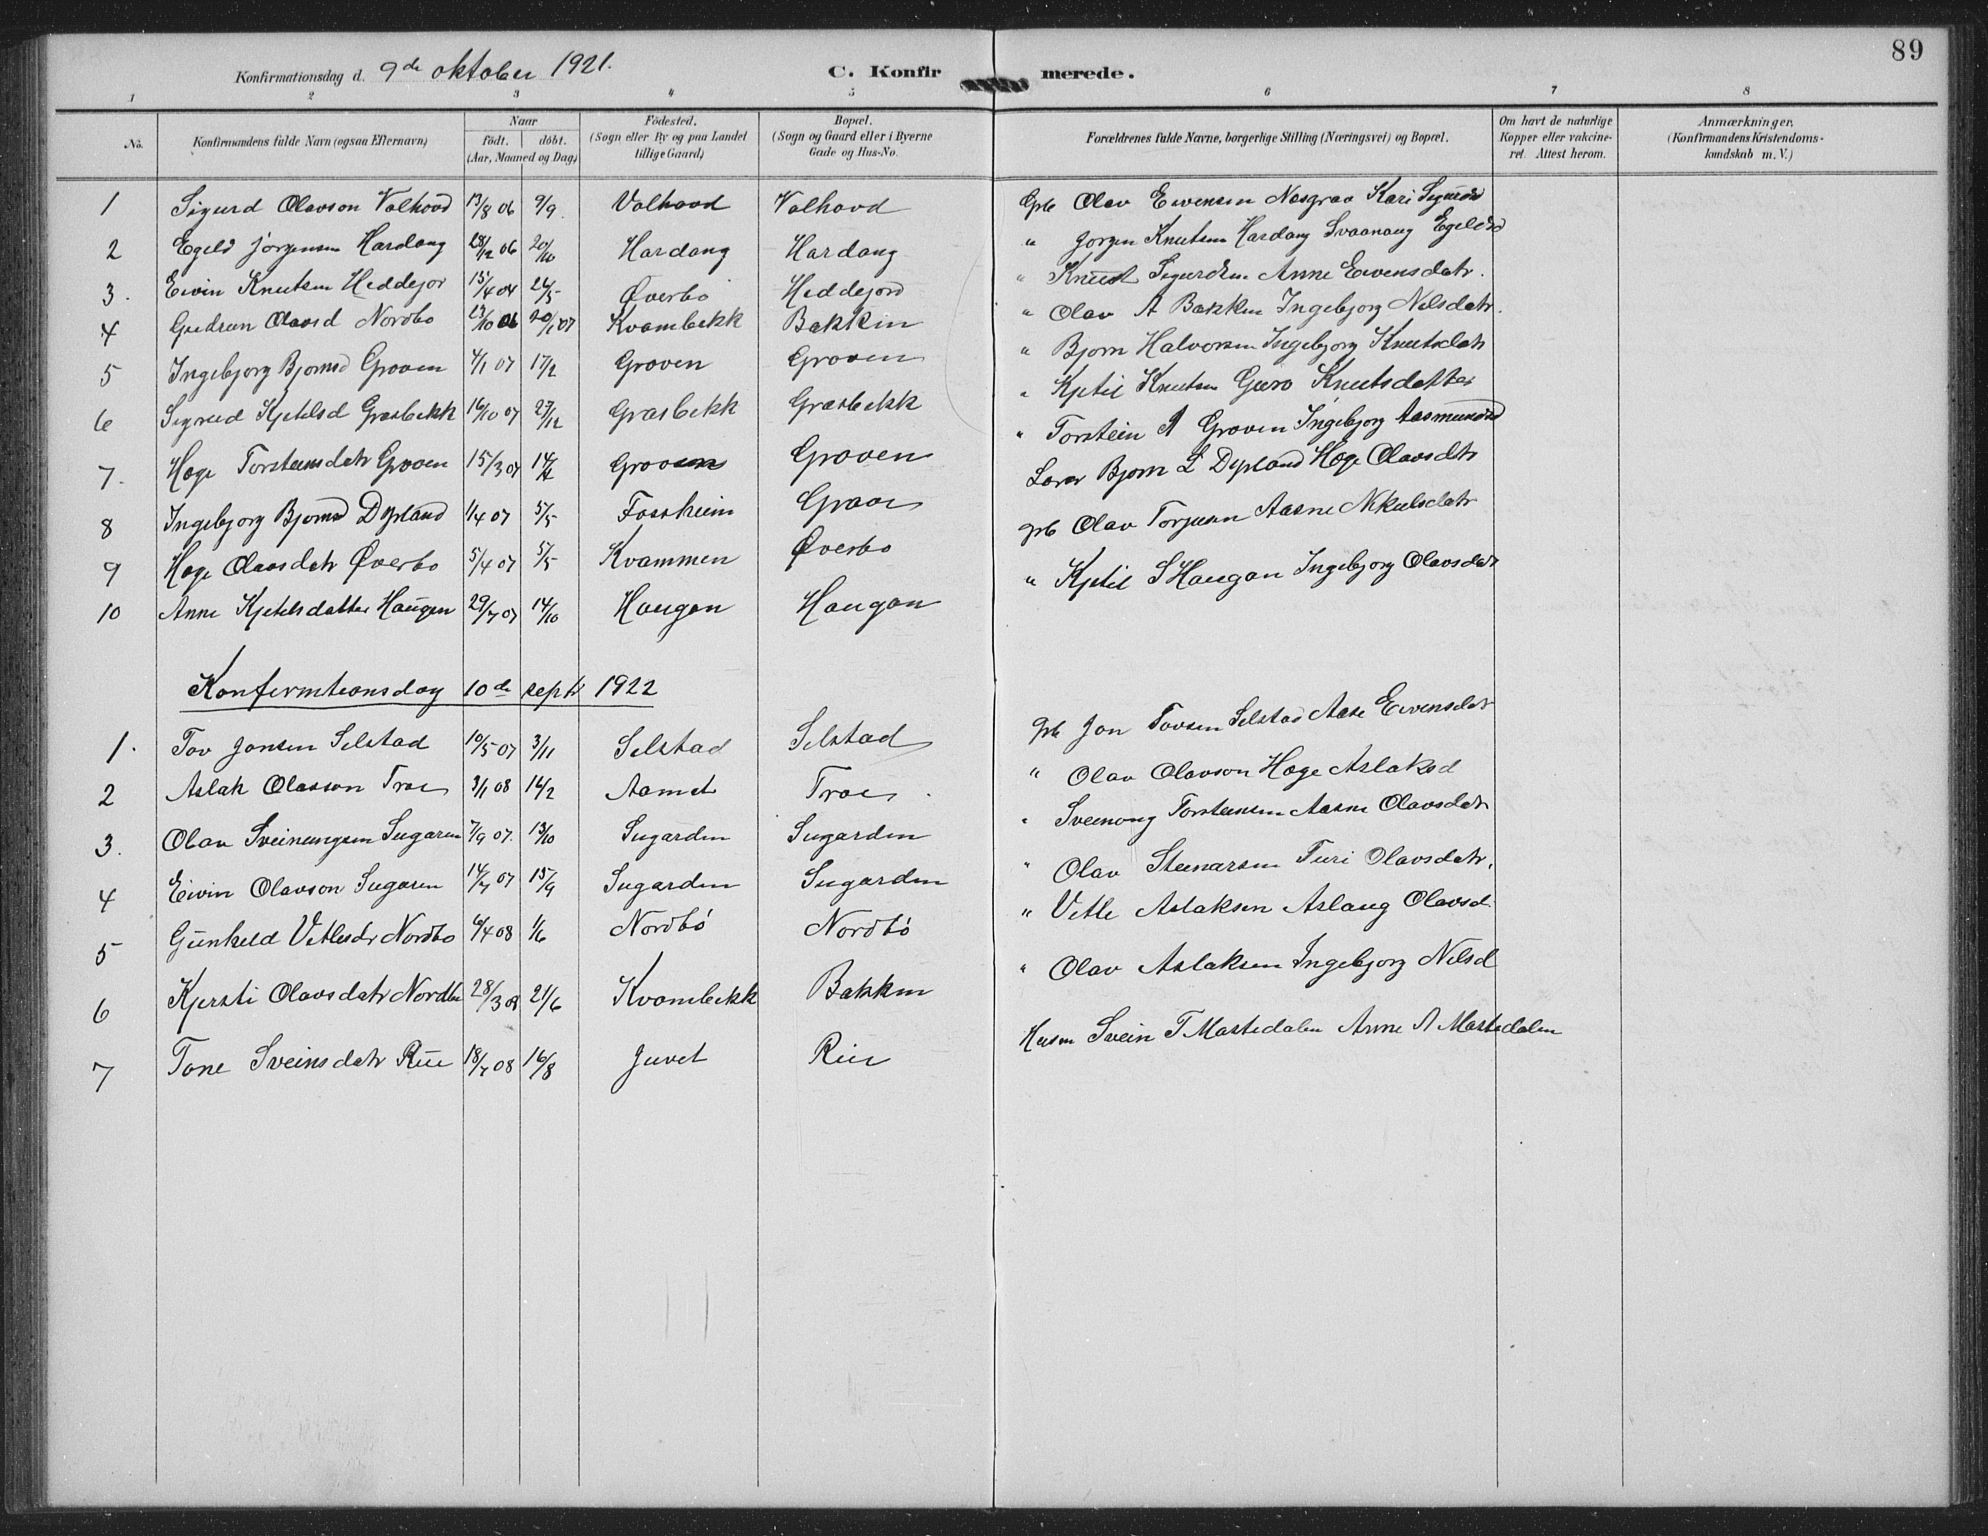 89
Konfirmationsdag d. 9de oktober 1921. C. Konfirmerede.
1 2 3 4 5 6 7 8
No. Konfirmandens fulde Navn (ogsaa Efternavn) Naar födt. döbt. (Aar, Maaned og Dag) Födested. (Sogn eller By og paa Landet tillige Gaard) Bopæl. (Sogn og Gaard eller i Byerne Gade og Hus-No. Forældrenes fulde Navne, borgerlige Stilling (Næringsvei) og Bopæl. Om havt de naturlige Kopper eller vakcineret. Attest herom. Anmærkninger. (Konfirmandens Kristendomskundskab m. V.)
1 Sigurd Olavson Valhovd 13/8 06 9/9. Valhovd Valhovd Gpb Olav Eivensen Nesgraa Kari Sigurdsd
2 Egeld Jørgensen Hardang 28/12 06 20/10 Hardang Hardang " Jorgen Knutsen Hardang Svaanaug Egeldsd
3. Eivin Knutsen Heddejor 15/4 04 24/5 Øverbo Heddejord " Knut Sigurdsen Anne Eivensdatr.
4 Gudrun Olavsd Nordbo 23/10 06 20/1 07 Kvambekk Bakken " Olav A Bakken Ingebjorg Nilsdatr.
5 Ingebjorg Bjornsd Groven 4/1 07 17/2 Groven Groven " Bjorn Halvorsen Ingebjorg Knutsdatr
6 Sigrud Kjetelsd Grasbekk 16/10 07 27/12 Grasbekk Grasbekk " Kjetil Knutsen Guro Knutsdatter
7. Hæge Torsteinsdatr Groven 15/3 07 14/4 Groven Groven " Torstein A Groven Ingebjorg Aasmundsd
8 Ingebjorg Bjornsd Dyrland 1/4 07 5/5 Fossheim Graver Lærer Bjorn L Dyrland Hæge Olavsdatr
9 Hæge Olavsdatr Øverbo 5/4 07 5/5 Kvammen Øverbo gpb Olav Torjusen Aasne Nikulsdatr
10 Anne Kjetelsdatter Haugen 29/7 07 14/10 Haugan Haugan " Kjetil S Haugan Ingebjorg Olavsdatr
Konfirmtionsdag 10de septr 1922
1. Tov Jonsen Selstad 10/5 07 3/11 Selstad Selstad gpb Jon Tovsen Selstad Aase Eivensdatr
2 Aslak Olavson Troe 3/1 08 14/2 Aamot Troe. " Olav Olavson Hæge Aslaksd
3. Olav Sveinungsen Sugaren 7/9 07. 13/10 Sugarden Sugarden " Sveinong Torsteinsen Aasne Olavsdatr
4 Eivin Olavson Sugaren 14/7 07 15/9 Sugarden Sugarden " Olav Steinarsen Turi Olavsdatr.
5 Gunheld Vetlesdr Nordbo 6/4 08 1/6 Nordbó Nordbó " Vetle Aslaksen Aslaug Olavsd.
6 Kjersti Olavsdatr Nordbo 28/3 08 21/6 Kvambekk Bakken " Olav Aslaksen Ingebjorg Nilsd
7 Tone Sveinsdatr Rue 18/7 08 16/8 Juvet Rue Husm Svein T Mastedalen Anne A Mastedalen